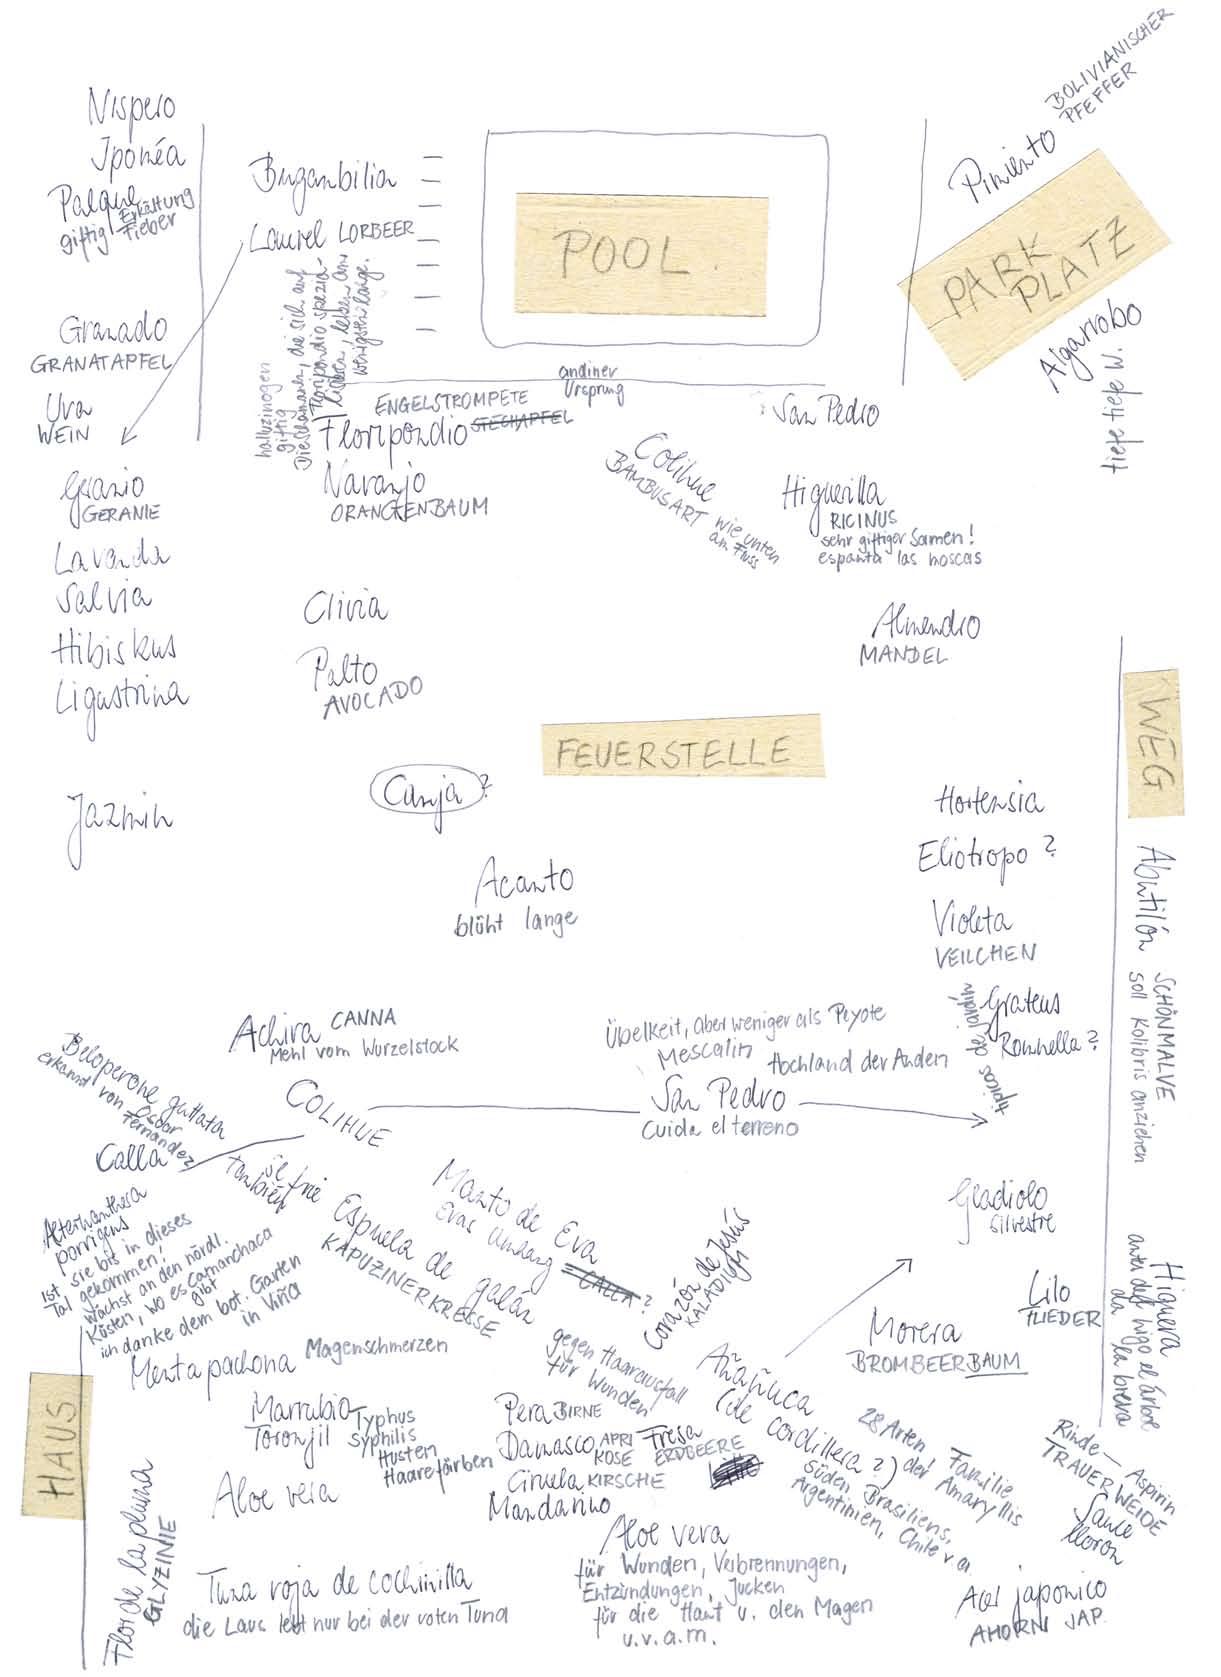 Nispero
Iponéa
Palque
giftig Erkältung
Fieber
Granado
GRANATAPFEL
Uva
WEIN
Geranio
GERANIE
Lavanda
Salvia
Hibiskus
Ligustrina
Jazmin
Buganbilia
Laurel LORBEER
halluzinogen
giftig
Die Schamanen, die sich auf
Floripondio spezia-
lisieren, leben am
wenigsten lange.
POOL
andiner
Ursprung
ENGELSTROMPETE
Floripondio STECHAPFEL
Naranjo
ORANGENBAUM
Clivia
Palto
AVOCADO
BOLIVIANISCHER
PFEFFER
Pimiento
PARK
PLATZ
Algarrobo
tiefe W.
San Pedro
Colihue
BAMBUSART wie unten
am Fluss
Higuerilla
RICINUS
sehr giftiger Samen!
espanta las moscas
Almendro
MANDEL
WEG
FEUERSTELLE
Canja?
Acanto
blüht lange
Hortensia
Eliotropo?
Violeta
VEILCHEN
Grateus
Ronnella?
típicos de jardín
Abutilón SCHÖNMALVE
soll Kolibris anziehen
Achira CANNA
Mehl vom Wurzelstock
Übelkeit, aber weniger als Peyote
Mescalin
Hochland der Anden
San Pedro
Cuida el terreno
COLIHUE
Beloperone guttata
erkannt von Oscar
Fernandez
Calla
también
Alternanthera
porrigens
Ist sie bis in dieses
Tal gekommen!
Wächst an den nördl.
Küsten, wo es Camanchaca
gibt
ich danke dem bot. Garten
in Viña
Espuela de galán
KAPUZINERKRESSE
Manto de Eva
Evas Umhang
= CALLA?
Corazón de Jesús
KALADIUM
Gladiolo
silvestre
Lilo
FLIEDER
Higuera
antes del higo el árbol
da la breva
Morera
BROMBEERBAUM
Menta pachona Magenschmerzen
gegen Haarausfall
für Wunden
Añañuca
(de cordillera?)
28 Arten! Familie
der Amaryllis
Süden Brasiliens,
Argentinien, Chile v.a.
HAUS
Marrubio Typhus
Toronjil Syphilis
Husten
Haarefärben
Pera BIRNE
Damasco APRI
KOSE
Fresa
ERDBEERE
Ciruela KIRSCHE
Mandarino
Aloe vera
Flor de la pluma
GLYZINIE
Tuna roja de cochinilla
die Laus lebt nur bei der roten Tuna
Aloe vera
für Wunden, Verbrennungen,
Entzündungen, Jucken
für die Haut u. den Magen
u.v.a.m.
Rinde – Aspirin
TRAUERWEIDE
Sauce
lloron
Acer japonico
AHORN JAP.